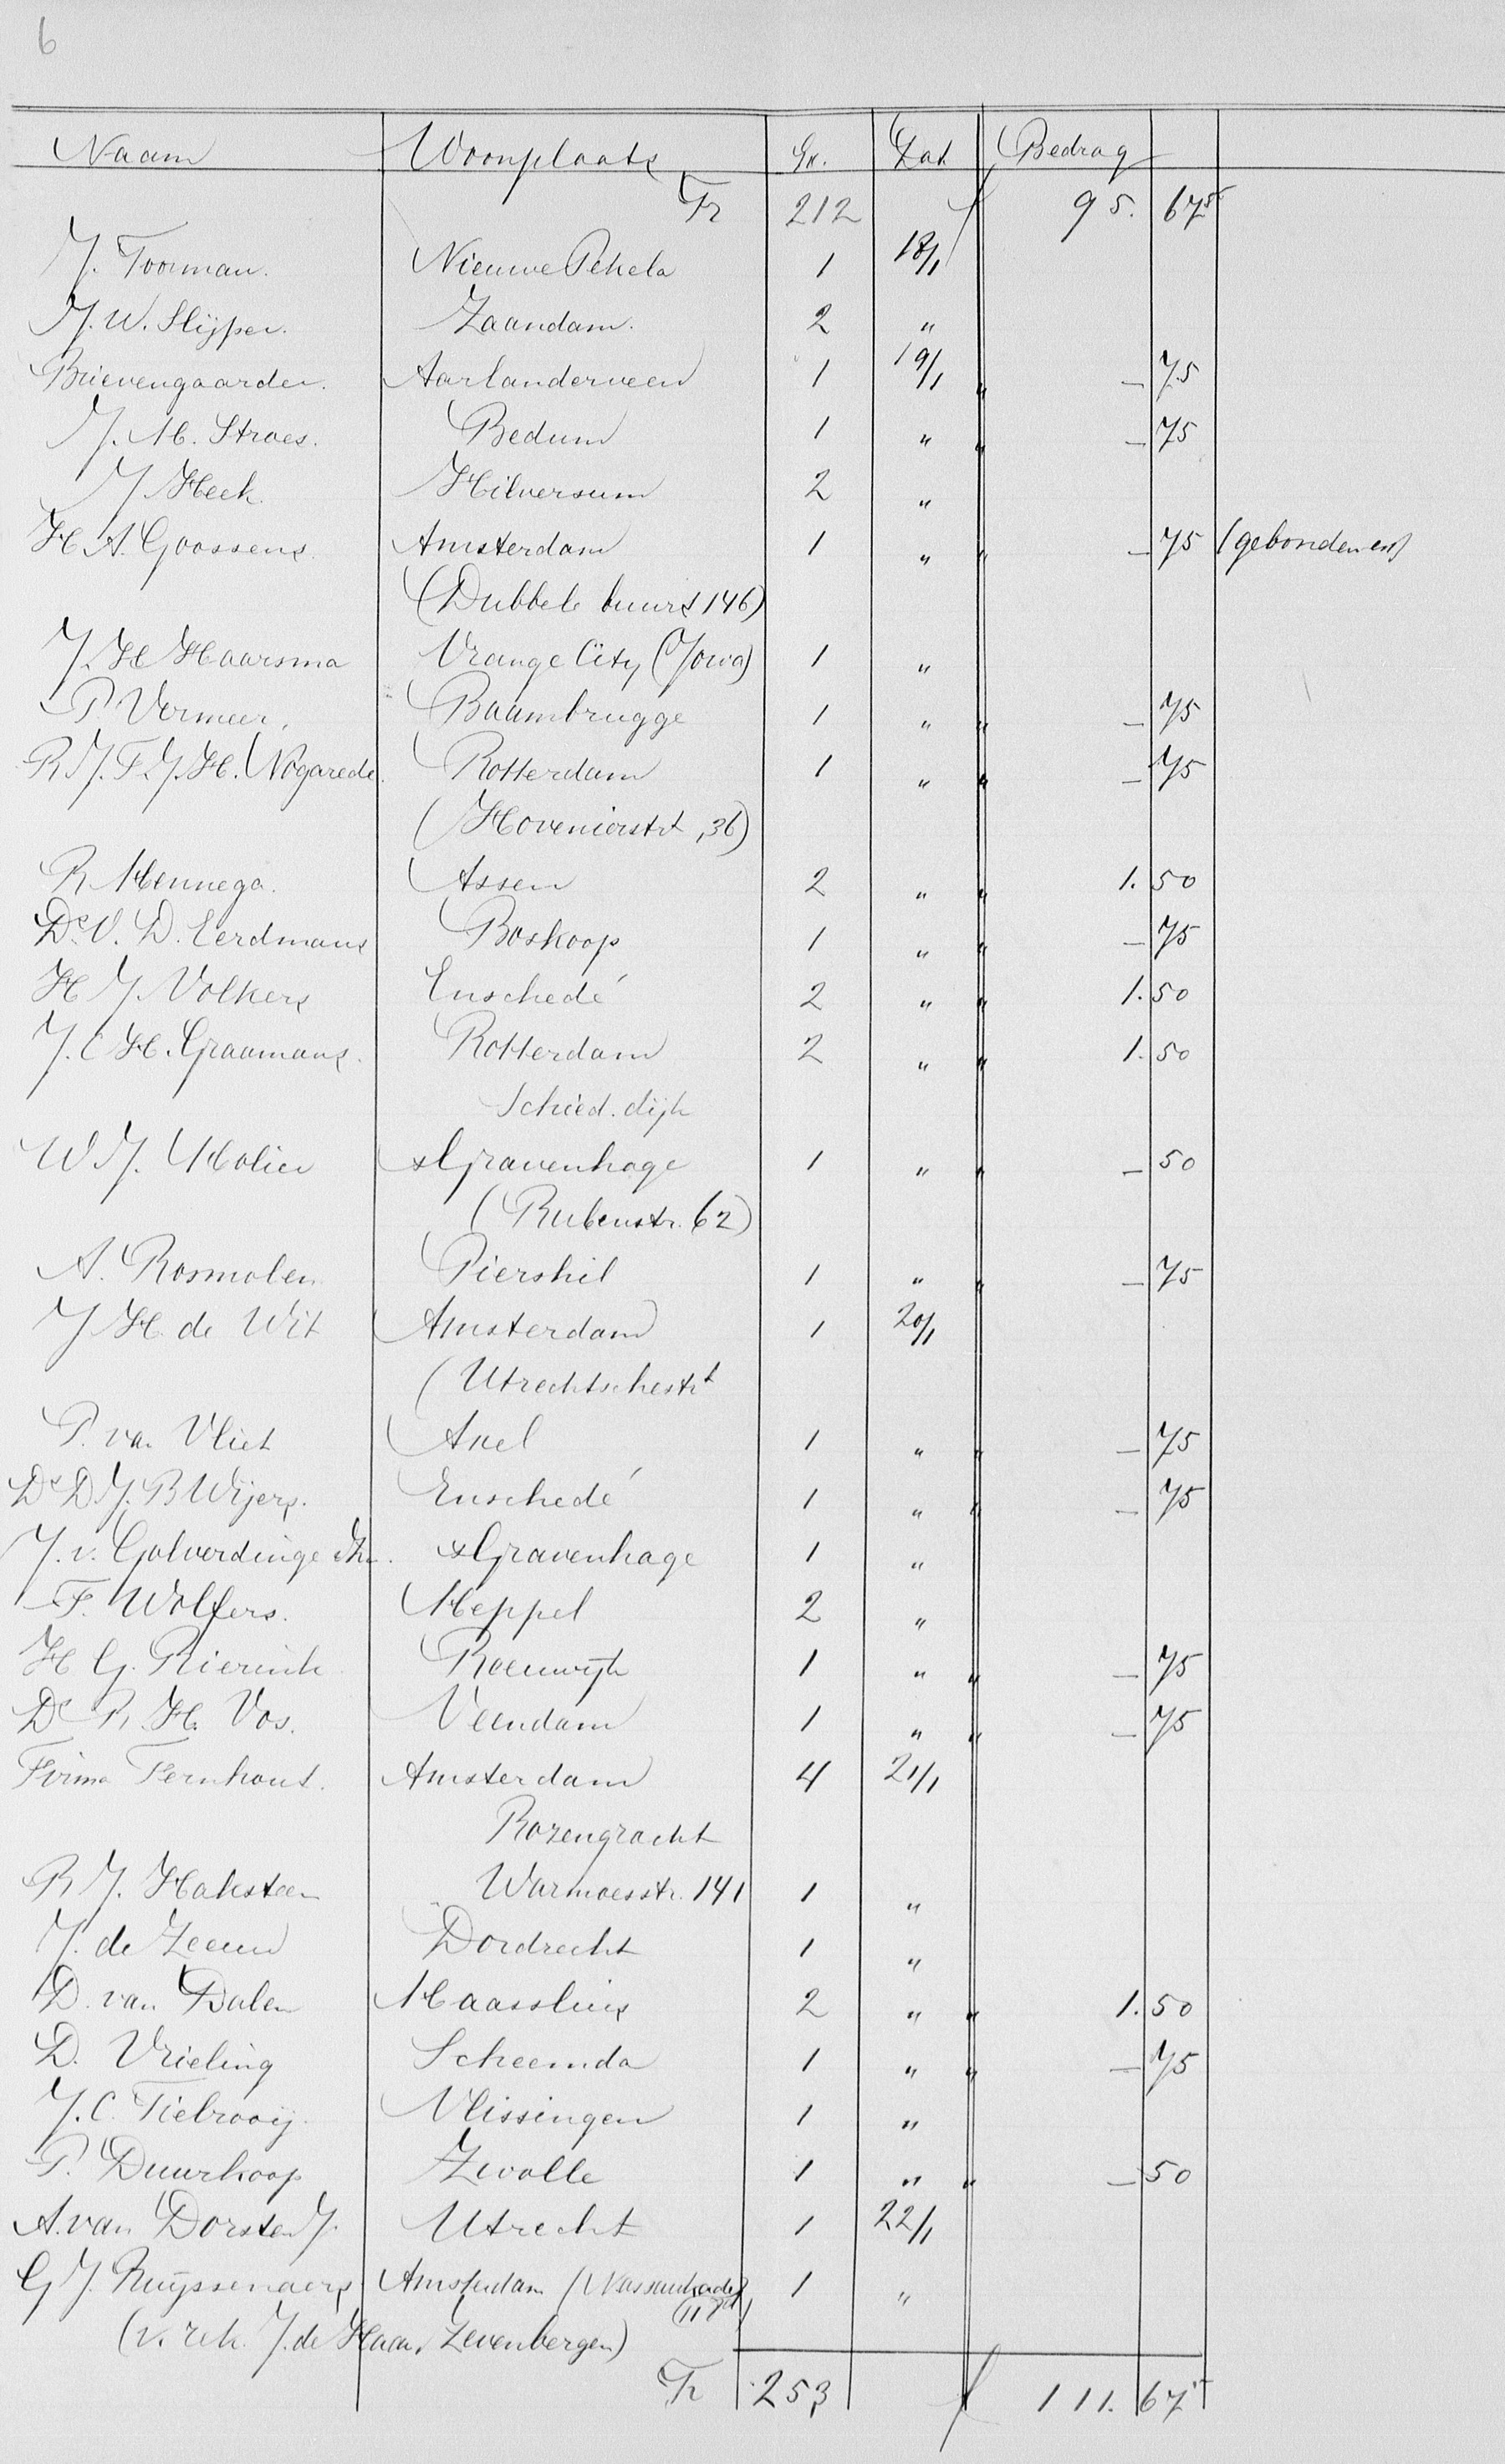 6
Naam Woonplaats Ex. Dat Bedrag
Tr 212 f 95. 67⁵
J. Toorman. Nieuwe Pekela 1 18/1
J. W. Slijper. Zaandam. 2 "
Brievengaarder. Aarlanderveen 1 19/1 " — 75
J. M. Stroes. Bedum 1 " " — 75
J Heek. Hilversum 2 "
H. A. Goossens. Amsterdam 1 " " — 75 (gebonden ex)
(Dubbele buurt 146)
J. H Haarsma Orange City (Jowa) 1 "
P. Vermeer. Baambrugge 1 " " — 75
R J. F. J. H. Nogarede. Rotterdam 1 " " — 75
(Hovenierstrt, 36)
R. Mennega. Assen 2 " " 1. 50
Ds. V. D. Eerdmans Boskoop 1 " " — 75
H J. Volkers Enschedé 2 " " 1. 50
J. C H. Graamans. Rotterdam 2 " " 1. 50
Schied. dijk
W J. Molier sGravenhage 1 " " — 50
(Rubenstr. 62)
A. Rosmolen Piershil 1 " " — 75
J H. de Wit Amsterdam 1 20/1
(Utrechtschestrt
P. van Vliet Axel 1 " " — 75
Ds D J. B Wijers. Enschedé 1 " " — 75
J. v. Golverdinge sGravenhage 1 "
F. Wolfers. Meppel 2 "
H G. Rierink Reeuwijk 1 " " — 75
Ds R. H. Vos. Veendam 1 " " — 75
Firma Fernhout. Amsterdam 4 21/1
Rozengracht
R J. Haksteen Warmoesstr. 141 1 "
J. de Zeeuw Dordrecht 1 "
D. van Dalen Maassluis 2 " " 1. 50
D. Vrieling Scheemda 1 " " — 75
J. C. Tielrooij. Vlissingen 1 "
P. Duurkoop Zwolle 1 " " — 50
A. van Dorsten J. Utrecht 1 22/1
G J. Ruijssenaers Amsterdam (Nassaukade 1 "
(v. rek. J. de Haan, Zevenbergen)
Tr 253 f 111. 67⁵